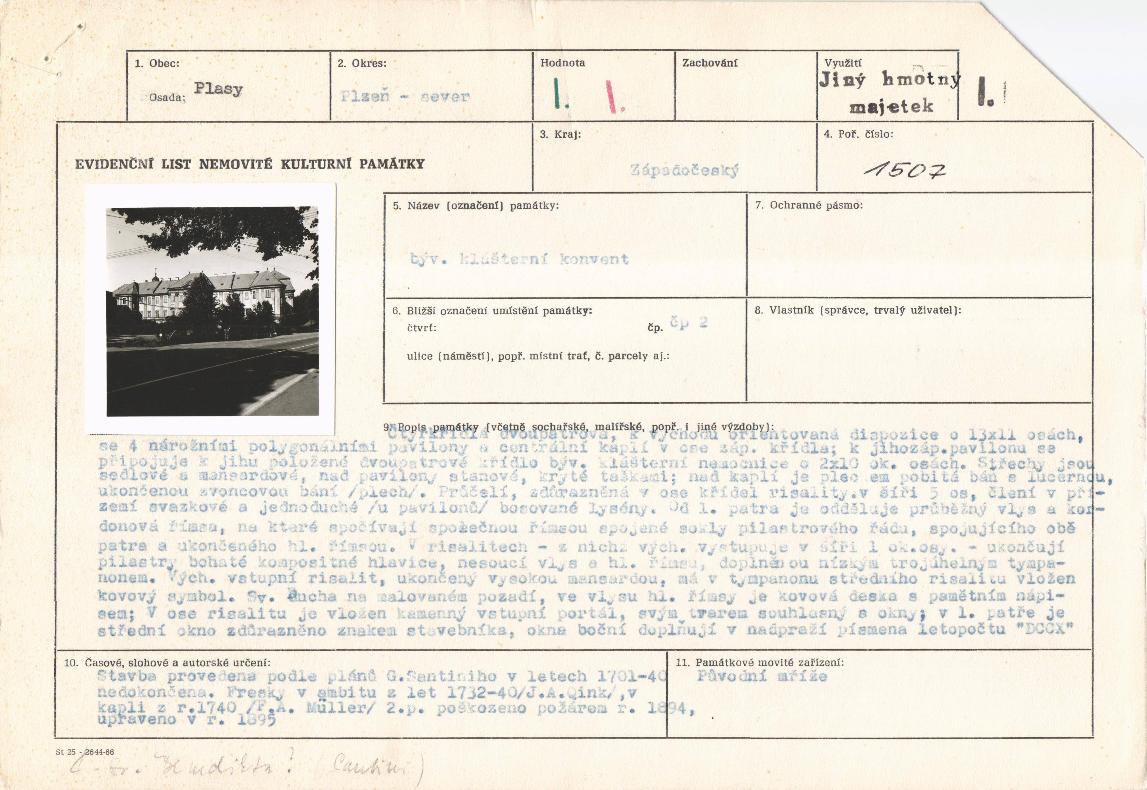 1. Obec:
Osada: Plasy
2. Okres:
Plzeň - sever
Hodnota
I. I.
Zachování
Využití
Jiný hmotný
majetek
I.
EVIDENČNÍ LIST NEMOVITÉ KULTURNÍ PAMÁTKY
3. Kraj:
Západočeský
4. Poř. číslo:
1507
5. Název (označení) památky:
býv. klášterní konvent
7. Ochranné pásmo:
6. Bližší označení umístění památky:
čtvrť: čp. čp 2
ulice (náměstí), popř. místní trať, č. parcely aj.:
8. Vlastník (správce, trvalý uživatel):
9. Popis památky (včetně sochařské, malířské, popř. i jiné výzdoby):
Čtyřkřídlá dvoupatrová, k východu orientovaná dispozice o 13x11 osách,
se 4 nárožními polygonálními pavilony a centrální kaplí v ose záp. křídla; k jihozáp.pavilonu se
připojuje k jihu položené dvoupatrové křídlo býv. klášterní nemocnice o 2x10 ok. osách. Střechy jsou
sedlové a mansardové, nad pavilony stanové, kryté taškami; nad kaplí je plechem pobitá báň s lucernou,
ukončenou zvoncovou bání /plech/. Průčelí, zdůrazněná v ose křídel risality v šíři 5 os, člení v pří-
zemí svazkové a jednoduché /u pavilonů/ bosované lysény. Od 1. patra je odděluje průběžný vlys a kor-
donová římsa, na které spočívají společnou římsou spojené sokly pilastrového řádu, spojujícího obě
patra a ukončeného hl. římsou. V risalitech - z nichž vých. vystupuje v šíři 1 ok.osy. - ukončují
pilastry bohaté kompositné hlavice, nesoucí vlys a hl. římsu, doplněnou nízkým trojúhelným tympa-
nonem. Vých. vstupní risalit, ukončený vysokou mansardou, má v tympanonu středního risalitu vložen
kovový symbol. Sv. Ducha na malovaném pozadí, ve vlysu hl. římsy je kovová deska s pamětním nápi-
sem; V ose risalitu je vložen kamenný vstupní portál, svým tvarem souhlasný s okny; v 1. patře je
střední okno zdůrazněno znakem stavebníka, okna boční doplňují v nadpraží písmena letopočtu "DCCX"
10. Časové, slohové a autorské určení:
Stavba provedena podle plánů G.Santiniho v letech 1701-40
nedokončena. Fresky v ambitu z let 1732-40/J.A.Qink/,v
kapli z r.1740 /F.A. Müller/ 2.p. poškozeno požárem r. 1894,
upraveno v r. 1895
11. Památkové movité zařízení:
Původní mříže
St 25 - 2644-66
sv. Benedikta? (Santini)